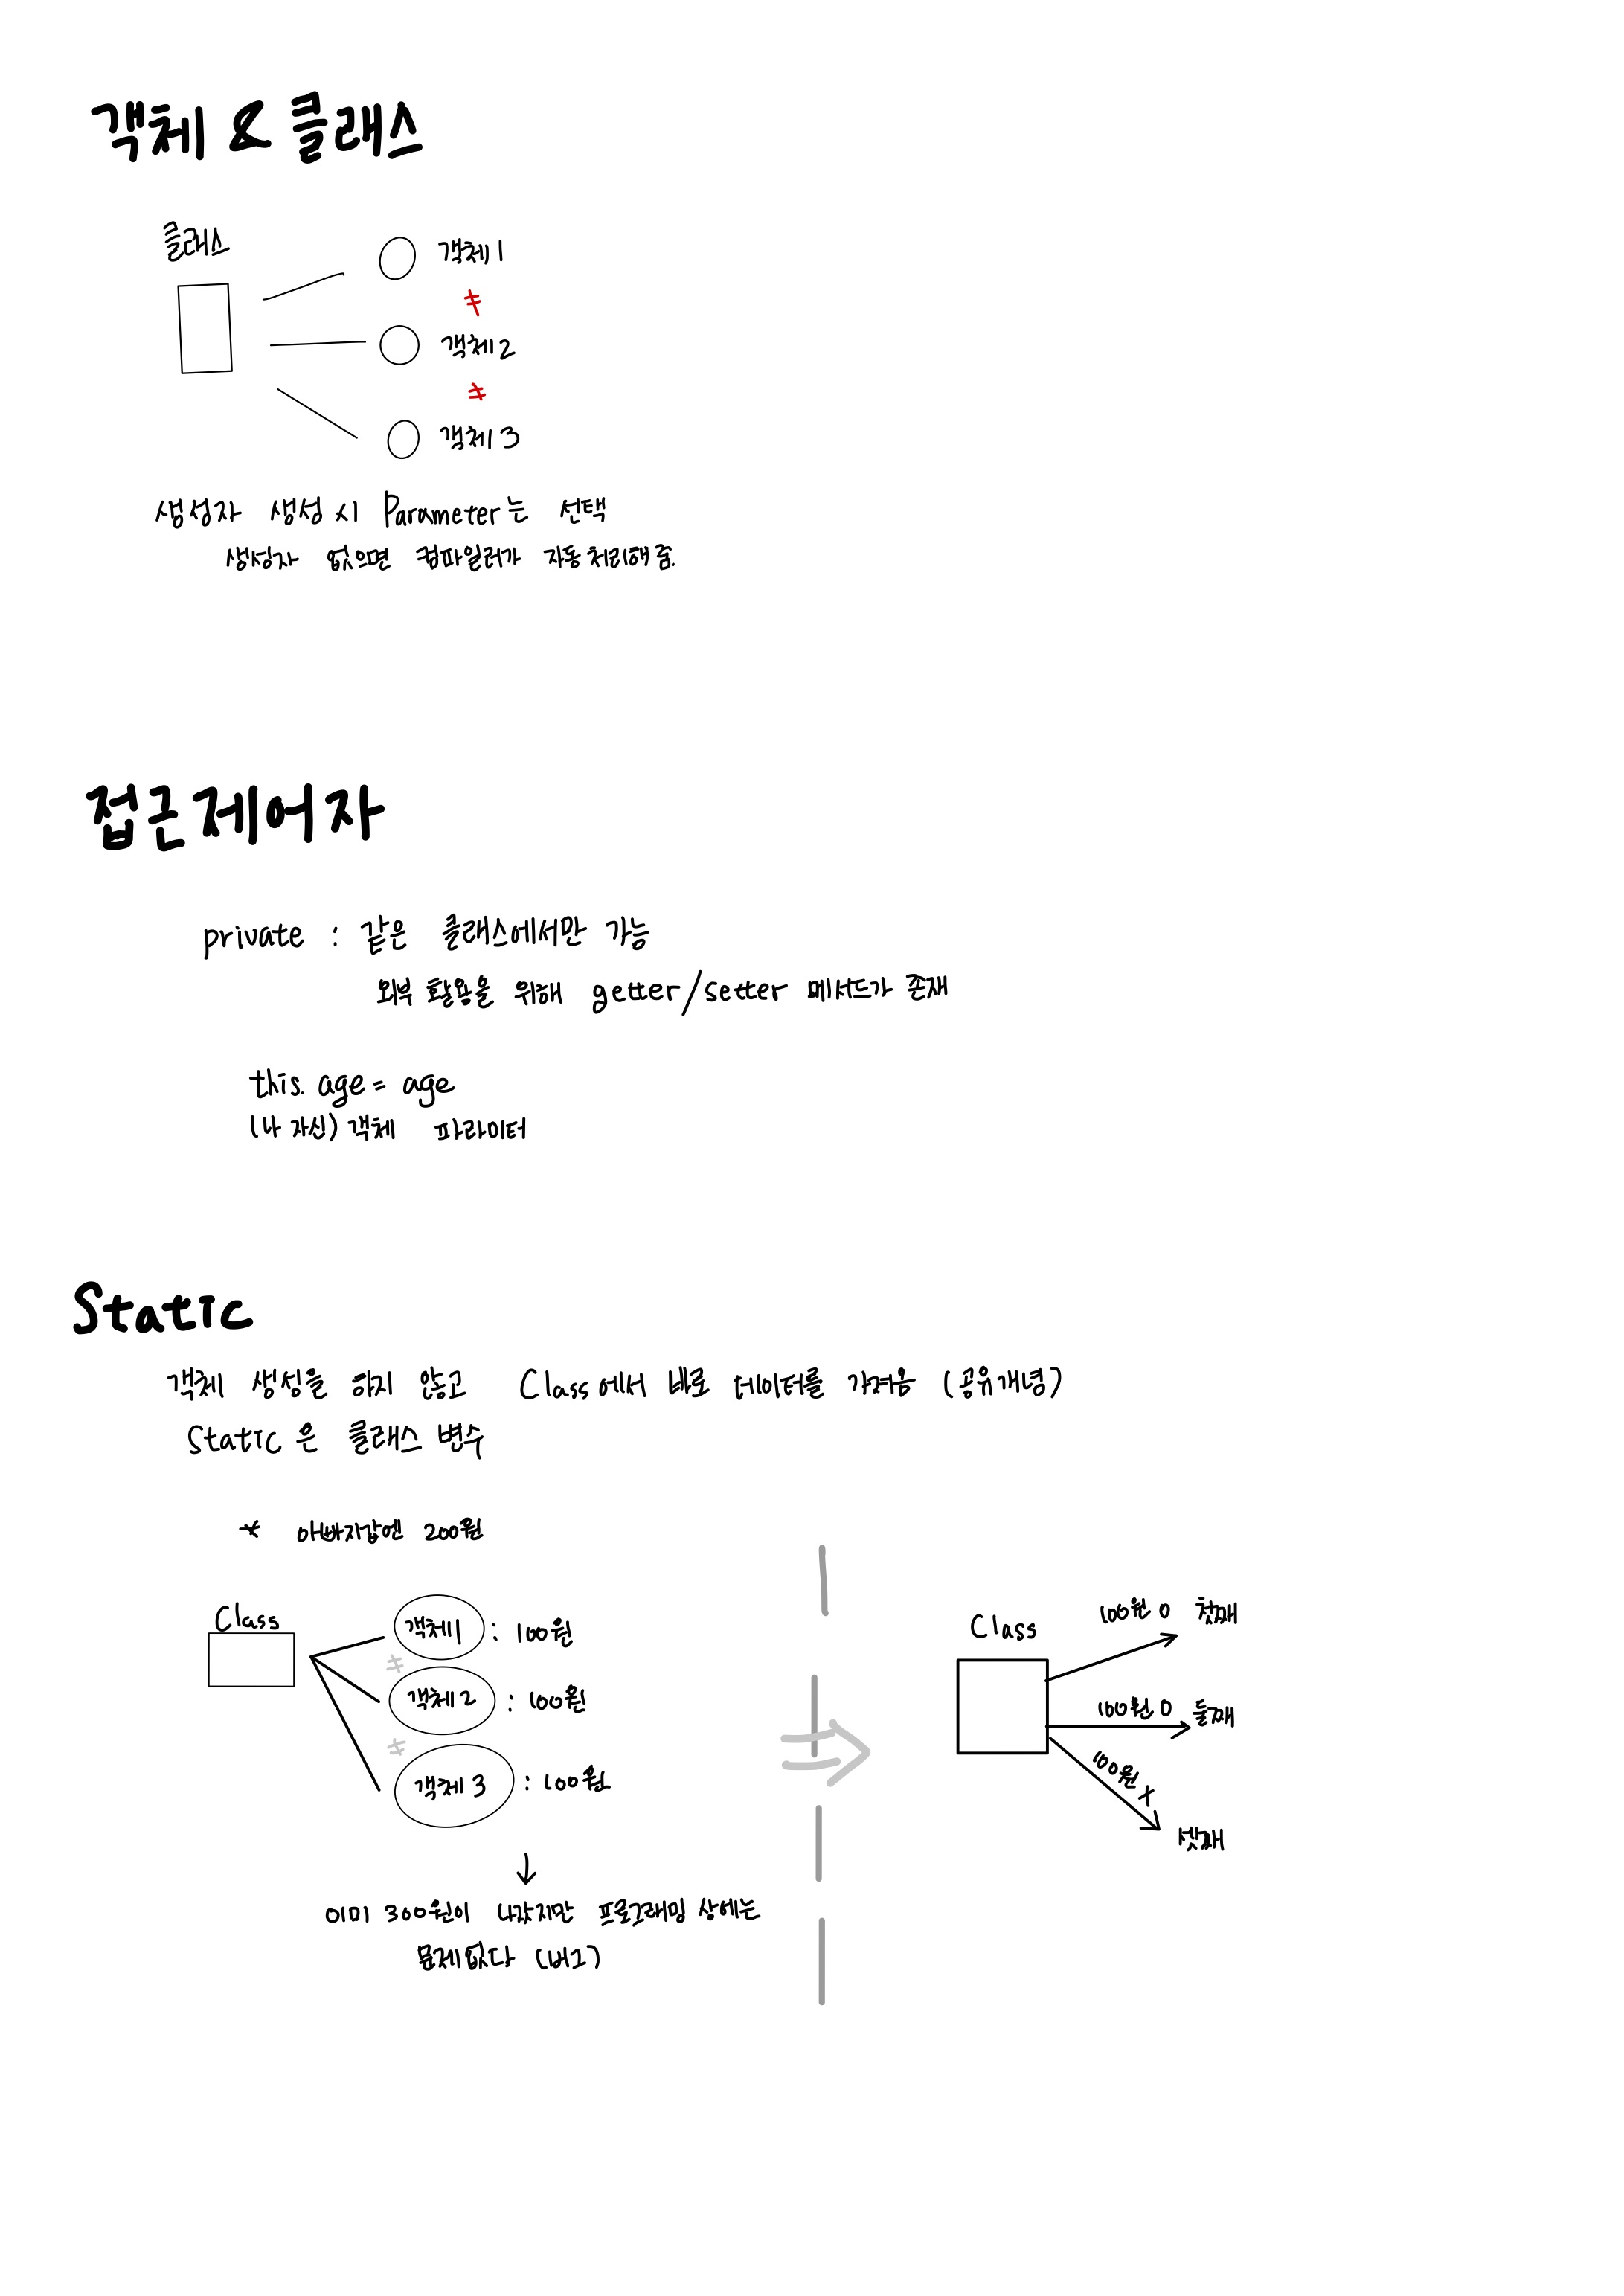 객체 & 클래스
클래스
객체1
≠
객체2
≠
객체3
생성자 생성시 Parameter는 선택
생성자 없으면 컴파일러가 자동처리해 줌.
접근제어자
private : 같은 클래스에서만 가능
외부 활용을 위해 getter/setter 메서드가 존재
this. age = age
(나 자신) 객체 파라미터
Static
객체 생성을 하지 않고 Class에서 바로 데이터를 가져옴 (공유개념)
Static은 클래스 변수
* 아빠지갑엔 200원
Class
객체1 : 100원
≠
객체2 : 100원
≠
객체3 : 100원
↓
이미 300원이 나갔지만 프로그래밍 상에는
문제없다 (버그)
⇒
Class
100원 O 첫째
100원 O 둘째
100원 X
셋째